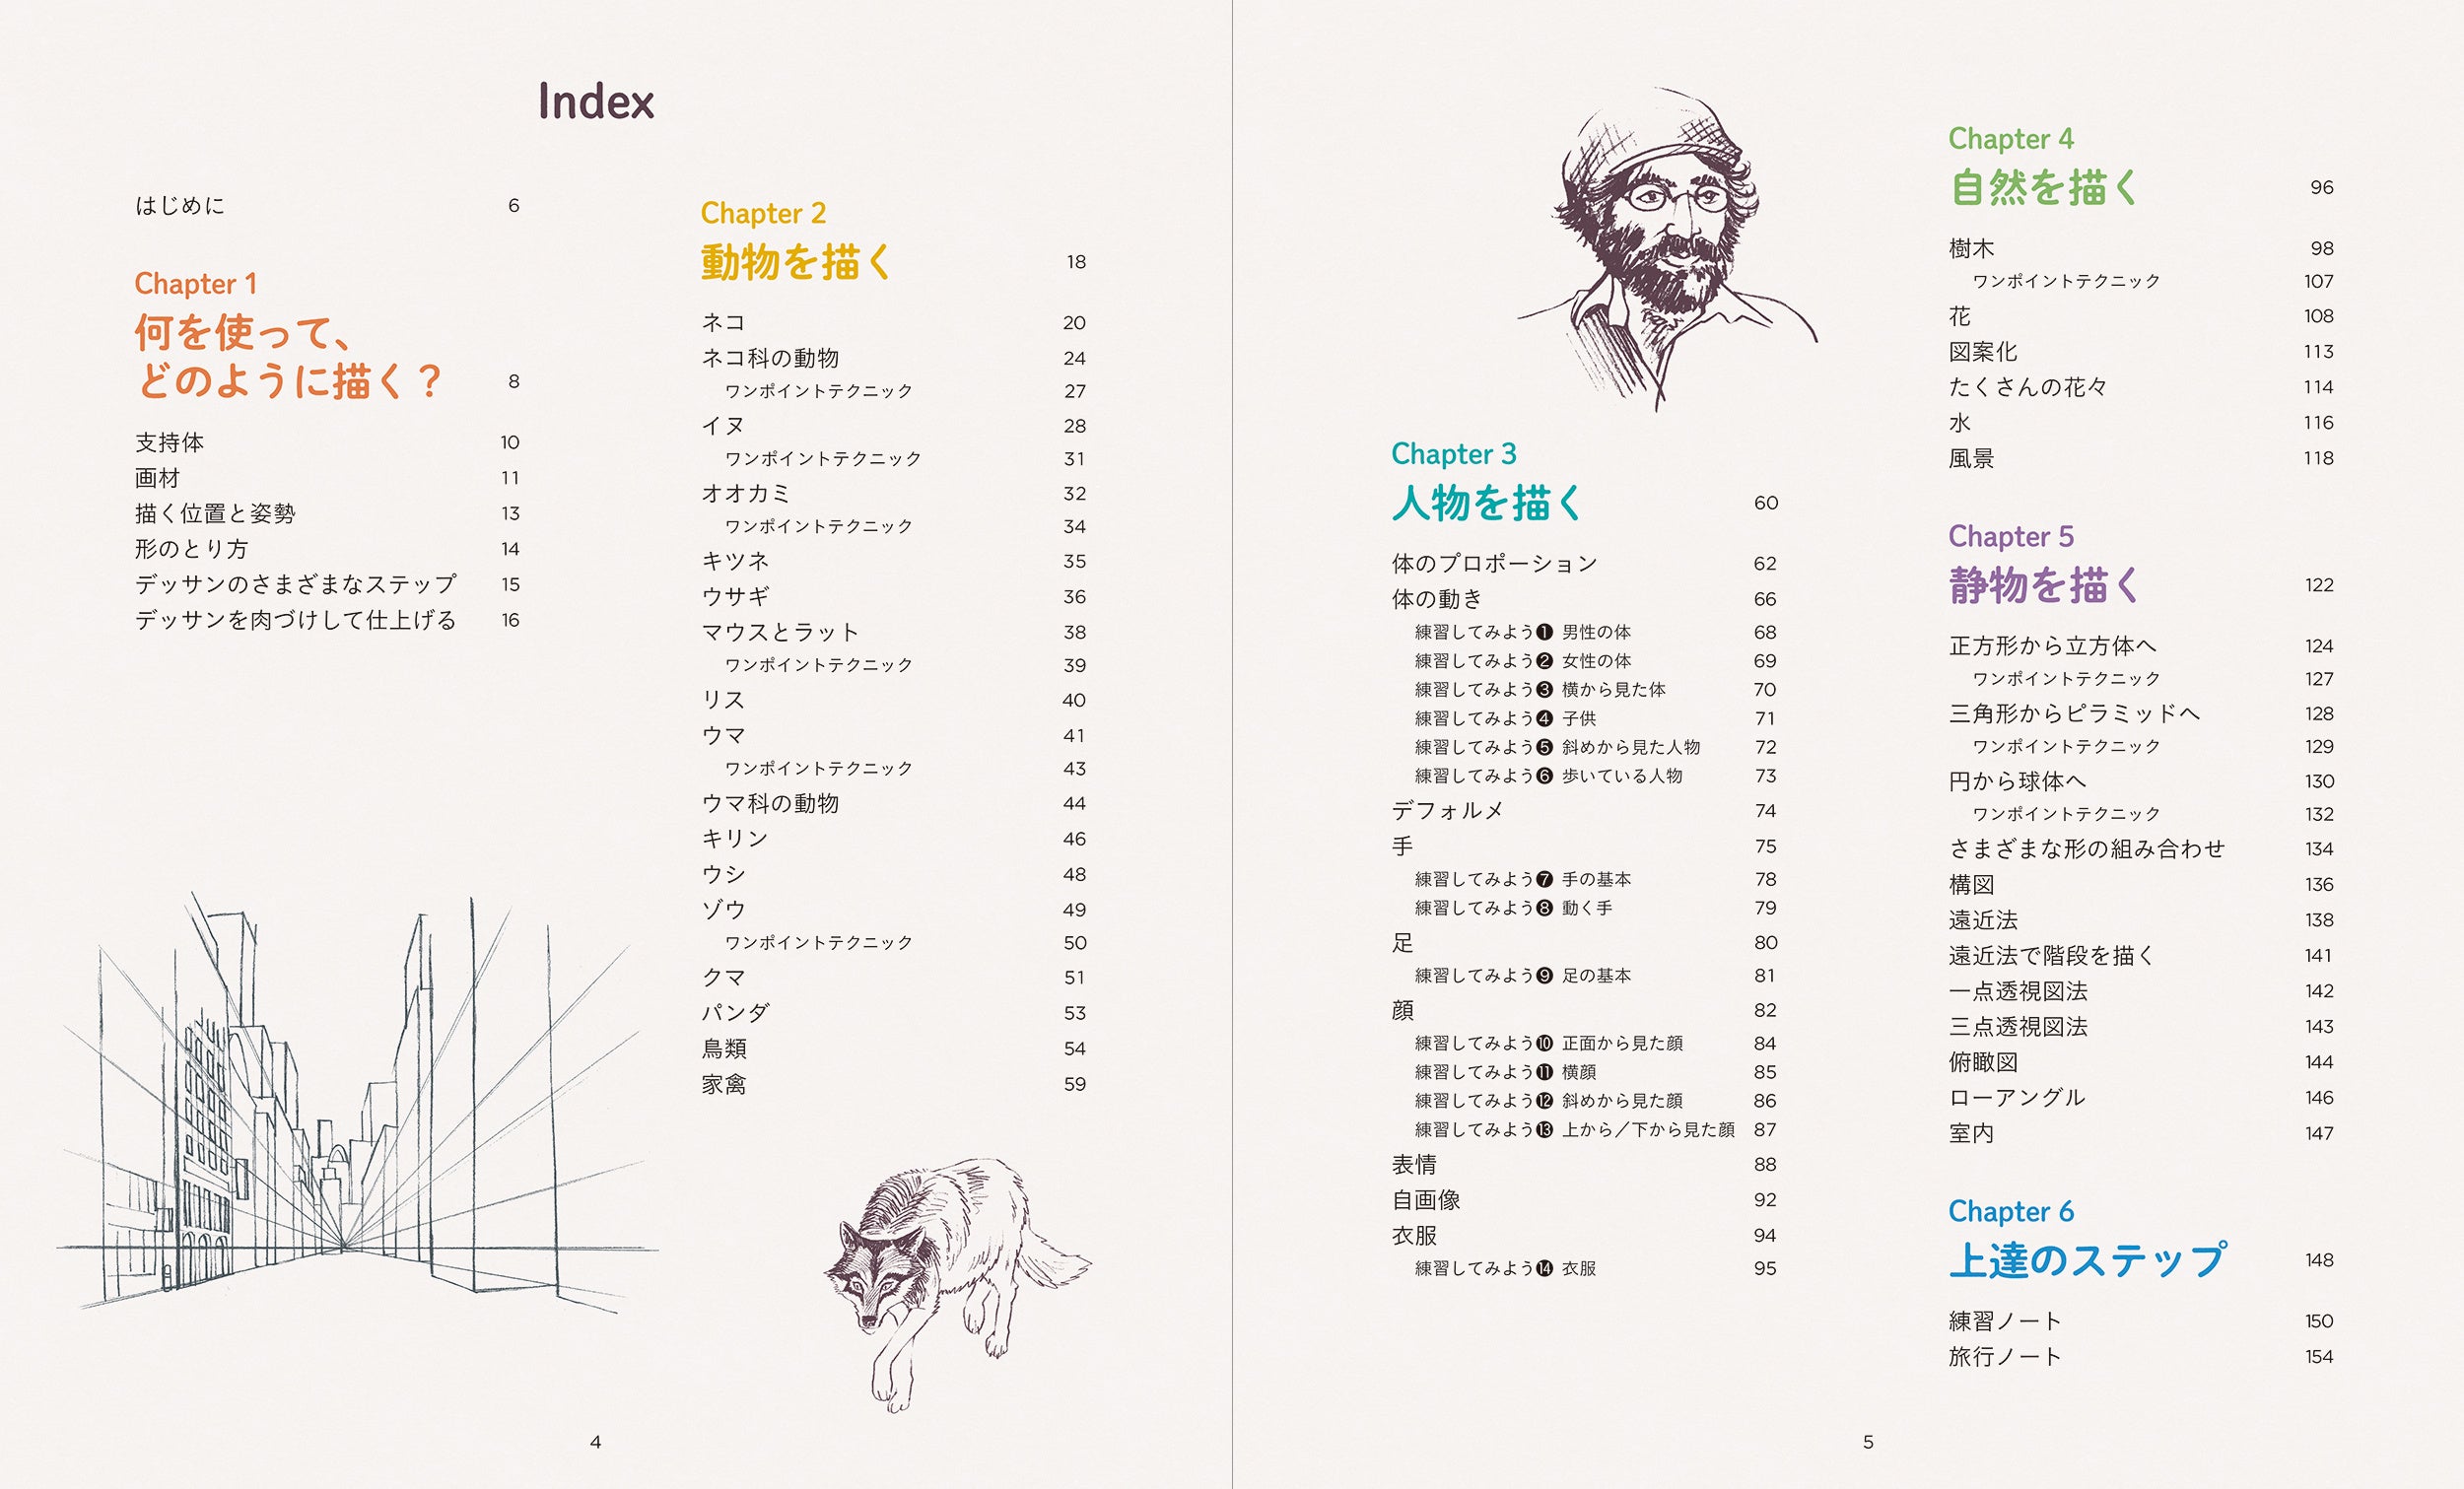 Index
はじめに 6
Chapter 1
何を使って、
どのように描く？ 8
支持体 10
画材 11
描く位置と姿勢 13
形のとり方 14
デッサンのさまざまなステップ 15
デッサンを肉づけして仕上げる 16
Chapter 2
動物を描く 18
ネコ 20
ネコ科の動物 24
ワンポイントテクニック 27
イヌ 28
ワンポイントテクニック 31
オオカミ 32
ワンポイントテクニック 34
キツネ 35
ウサギ 36
マウスとラット 38
ワンポイントテクニック 39
リス 40
ウマ 41
ワンポイントテクニック 43
ウマ科の動物 44
キリン 46
ウシ 48
ゾウ 49
ワンポイントテクニック 50
クマ 51
パンダ 53
鳥類 54
家禽 59
4
Chapter 3
人物を描く 60
体のプロポーション 62
体の動き 66
練習してみよう❶ 男性の体 68
練習してみよう❷ 女性の体 69
練習してみよう❸ 横から見た体 70
練習してみよう❹ 子供 71
練習してみよう❺ 斜めから見た人物 72
練習してみよう❻ 歩いている人物 73
デフォルメ 74
手 75
練習してみよう❼ 手の基本 78
練習してみよう❽ 動く手 79
足 80
練習してみよう❾ 足の基本 81
顔 82
練習してみよう❿ 正面から見た顔 84
練習してみよう⓫ 横顔 85
練習してみよう⓬ 斜めから見た顔 86
練習してみよう⓭ 上から／下から見た顔 87
表情 88
自画像 92
衣服 94
練習してみよう⓮ 衣服 95
Chapter 4
自然を描く 96
樹木 98
ワンポイントテクニック 107
花 108
図案化 113
たくさんの花々 114
水 116
風景 118
Chapter 5
静物を描く 122
正方形から立方体へ 124
ワンポイントテクニック 127
三角形からピラミッドへ 128
ワンポイントテクニック 129
円から球体へ 130
ワンポイントテクニック 132
さまざまな形の組み合わせ 134
構図 136
遠近法 138
遠近法で階段を描く 141
一点透視図法 142
三点透視図法 143
俯瞰図 144
ローアングル 146
室内 147
Chapter 6
上達のステップ 148
練習ノート 150
旅行ノート 154
5